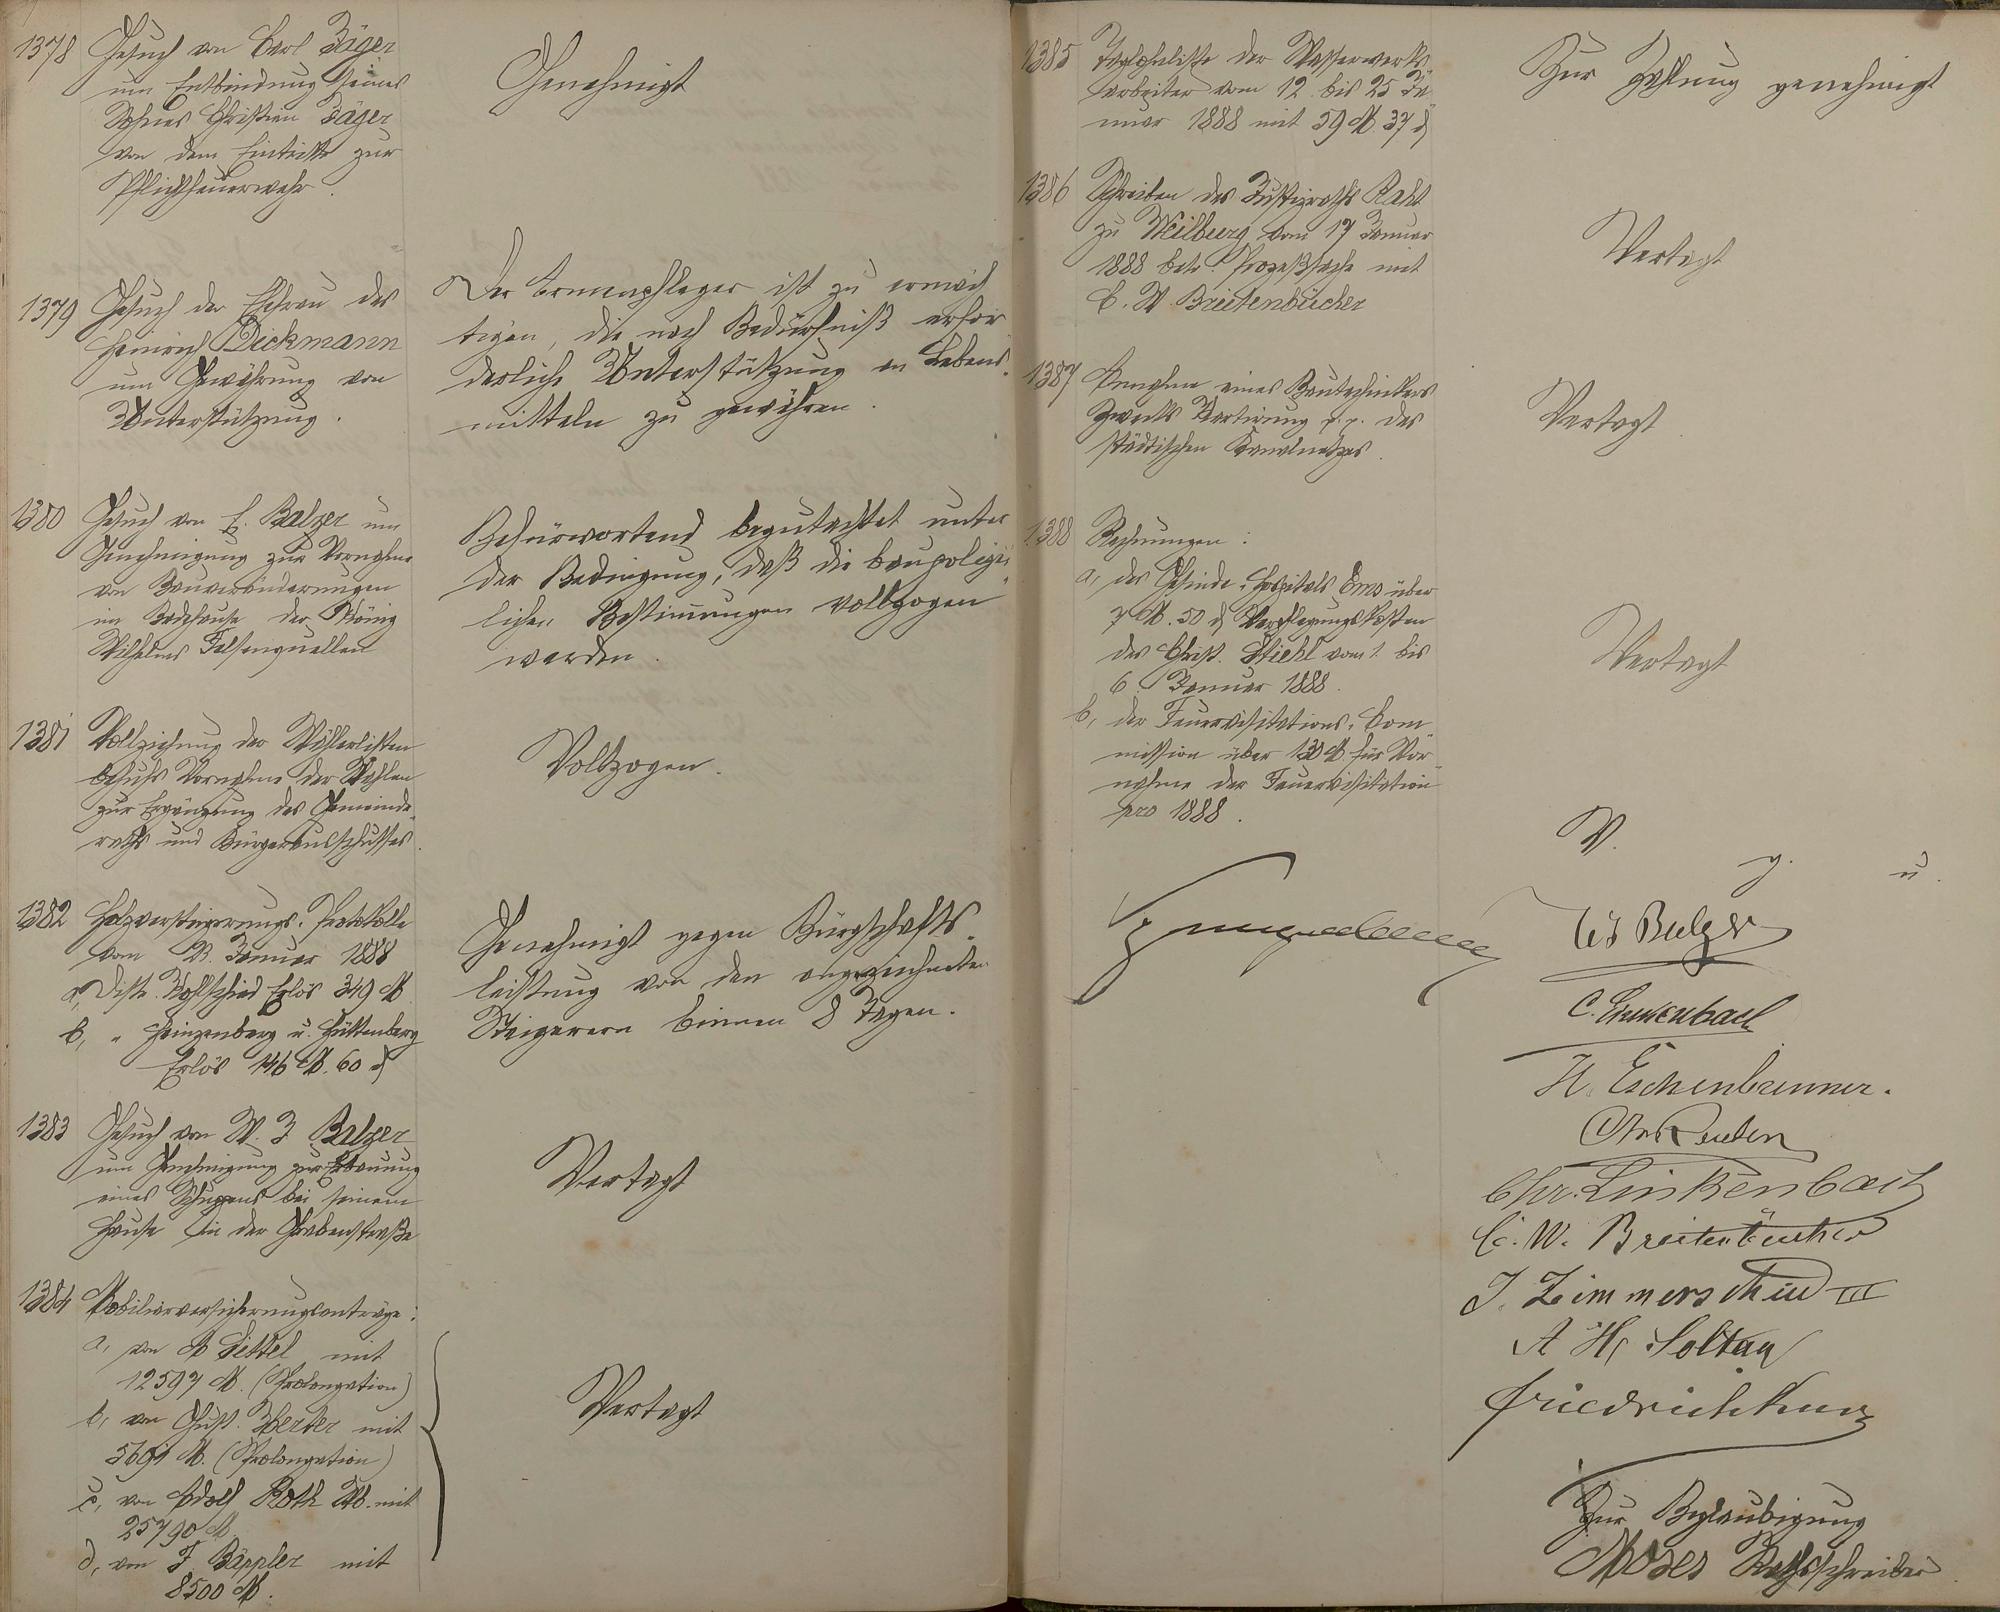 1378 Gesuch von Carl Jäger
um Entbindung seines
Sohnes Christian Jäger
von dem Eintritte zur
Pflichtfeuerwehr.
Genehmigt
1379 Gesuch der Ehefrau des
Heinrich Dickmann
um Gewährung von
Unterstützung.
Der Armenpfleger ist zu ermäch
tigen, die nach Bedürfniß erfor
derliche Unterstützung an Lebens
mitteln zu gewähren.
1380 Gesuch von E. Balzer um
Genehmigung zur Vornahme
von Bauveränderungen
im Badehause der König
Wilhelms Felsenquellen
Befürwortend begutachtet unter
der Bedingung, daß die baupolizei
lichen Bestimmungen vollzogen
werden.
1381 Vollziehung der Wählerlisten
behufs Vornahme der Wahlen
zur Ergänzung des Gemeinde
raths und Bürgerausschusses.
Vollzogen.
1382 Holzversteigerungs-Protokolle
vom 23. Januar 1888
a, Distr. Kohlscheid Erlös 349 M
b, " Heinzenberg u. Hüttenberg
Erlös 146 M. 60 d
Genehmigt gegen Bürgschafts
leistung von den angezeichneten
Steigerern binnen 8 Tagen.
1383 Gesuch von W. J. Balzer
um Genehmigung zur Erbauung
eines Schuppens bei seinem
Hause in der Grabenstraße
Vertagt
1384 Mobiliarversicherungsanträge:
a, von A Sittel mit
12597 M. (Prolongation)
b, von Gust. Herber mit
5691 M. (Prolongation)
c, von Adolf Roth Wb. mit
25790 M
d, von F Bäppler mit
8500 M.
Vertagt
1385 Taglohnliste der Wasserwerks
arbeiter vom 12. bis 25 Ja
nuar 1888 mit 59 M. 37 d
Zur Zahlung genehmigt
1386 Schreiben des Justizraths Raht
zu Weilburg vom 17 Januar
1888 betr. Prozeßsache mit
C. W Breitenbücher
Vertagt
1387 Annahme eines Bautechnikers
Zwecks Kartirung p. p. des
städtischen Kanalnetzes.
Vertagt
1388 Rechnungen:
a, des Gesinde-Hospitals Ems über
7 M. 50 d Verpflegungskosten
des Christ. Stiehl vom 1. bis
6. Januar 1888.
b, der Feuervisitations-Com
mission über 130 M. für Vor
nahme der Feuervisitation
pro 1888.
Vertagt
V. g. u.
Balzer
C. Linkenbach
H. Eschenbrenner.
Chr. Linkenbach
C. W. Breitenbücher
J. Zimmerschied III
A H. Soltau
Friedrich Kunz
Zur Beglaubigung
Moses Rathsschreiber